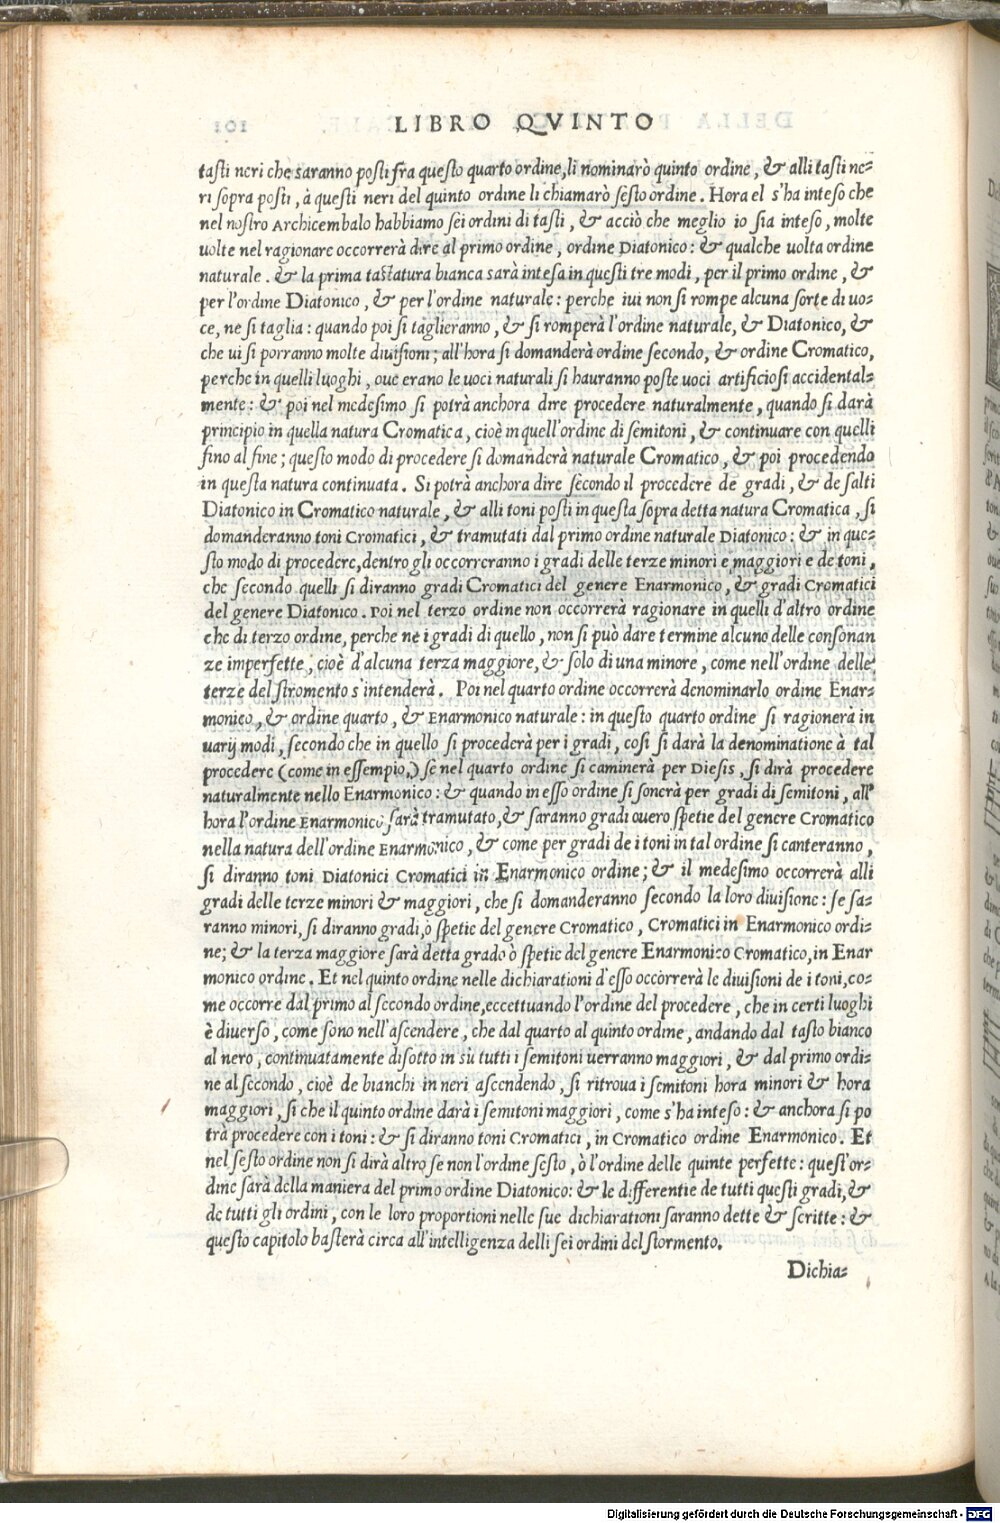 LIBRO QVINTO
tasti neri che saranno posti fra questo quarto ordine, li nominarò quinto ordine, & alli tasti ne=
ri sopra posti, à questi neri del quinto ordine li chiamarò sesto ordine. Hora el s'ha inteso che
nel nostro Archicembalo habbiamo sei ordini di tasti, & acciò che meglio io sia inteso, molte
uolte nel ragionare occorrerà dire al primo ordine, ordine Diatonico: & qualche uolta ordine
naturale. & la prima tastatura bianca sarà intesa in questi tre modi, per il primo ordine, &
per l'ordine Diatonico, & per l'ordine naturale: perche iui non si rompe alcuna sorte di uo=
ce, ne si taglia: quando poi si taglieranno, & si romperà l'ordine naturale, & Diatonico, &
che ui si porranno molte diuisioni; all'hora si domanderà ordine secondo, & ordine Cromatico,
perche in quelli luoghi, oue erano le uoci naturali si hauranno poste uoci artificiosi accidental=
mente: & poi nel medesimo si potrà anchora dire procedere naturalmente, quando si darà
principio in quella natura Cromatica, cioè in quell'ordine di semitoni, & continuare con quelli
fino al fine; questo modo di procedere si domanderà naturale Cromatico, & poi procedendo
in questa natura continuata. Si potrà anchora dire secondo il procedere de gradi, & de salti
Diatonico in Cromatico naturale, & alli toni posti in questa sopra detta natura Cromatica, si
domanderanno toni Cromatici, & tramutati dal primo ordine naturale Diatonico: & in que=
sto modo di procedere, dentro gli occorreranno i gradi delle terze minori e maggiori e de toni,
che secondo quelli si diranno gradi Cromatici del genere Enarmonico, & gradi Cromatici
del genere Diatonico. Poi nel terzo ordine non occorrerà ragionare in quelli d'altro ordine
che di terzo ordine, perche ne i gradi di quello, non si può dare termine alcuno delle consonan
ze imperfette, cioè d'alcuna terza maggiore, & solo di una minore, come nell'ordine delle
terze del stromento s'intenderà. Poi nel quarto ordine occorrerà denominarlo ordine Enar=
monico, & ordine quarto, & Enarmonico naturale: in questo quarto ordine si ragionerà in
uarij modi, secondo che in quello si procederà per i gradi, cosi si darà la denominatione à tal
procedere (come in essempio,) se nel quarto ordine si caminerà per Diesis, si dirà procedere
naturalmente nello Enarmonico: & quando in esso ordine si sonerà per gradi di semitoni, all'
hora l'ordine Enarmonico sarà tramutato, & saranno gradi ouero spetie del genere Cromatico
nella natura dell'ordine Enarmonico, & come per gradi de i toni in tal ordine si canteranno,
si diranno toni Diatonici Cromatici in Enarmonico ordine; & il medesimo occorrerà alli
gradi delle terze minori & maggiori, che si domanderanno secondo la loro diuisione: se sa=
ranno minori, si diranno gradi, ò spetie del genere Cromatico, Cromatici in Enarmonico ordi=
ne; & la terza maggiore sarà detta grado ò spetie del genere Enarmonico Cromatico, in Enar
monico ordine. Et nel quinto ordine nelle dichiarationi d'esso occorrerà le diuisioni de i toni, co=
me occorre dal primo al secondo ordine, eccettuando l'ordine del procedere, che in certi luoghi
è diuerso, come sono nell'ascendere, che dal quarto al quinto ordine, andando dal tasto bianco
al nero, continuatamente di sotto in sù tutti i semitoni uerranno maggiori, & dal primo ordi=
ne al secondo, cioè de bianchi in neri ascendendo, si ritroua i semitoni hora minori & hora
maggiori, si che il quinto ordine darà i semitoni maggiori, come s'ha inteso: & anchora si po
trà procedere con i toni: & si diranno toni Cromatici, in Cromatico ordine Enarmonico. Et
nel sesto ordine non si dirà altro se non l'ordine sesto, ò l'ordine delle quinte perfette: quest'or=
dine sarà della maniera del primo ordine Diatonico: & le differentie de tutti questi gradi, &
de tutti gli ordini, con le loro proportioni nelle sue dichiarationi saranno dette & scritte: &
questo capitolo basterà circa all'intelligenza delli sei ordini del stormento.
Dichia=
Digitalisierung gefördert durch die Deutsche Forschungsgemeinschaft - DFG